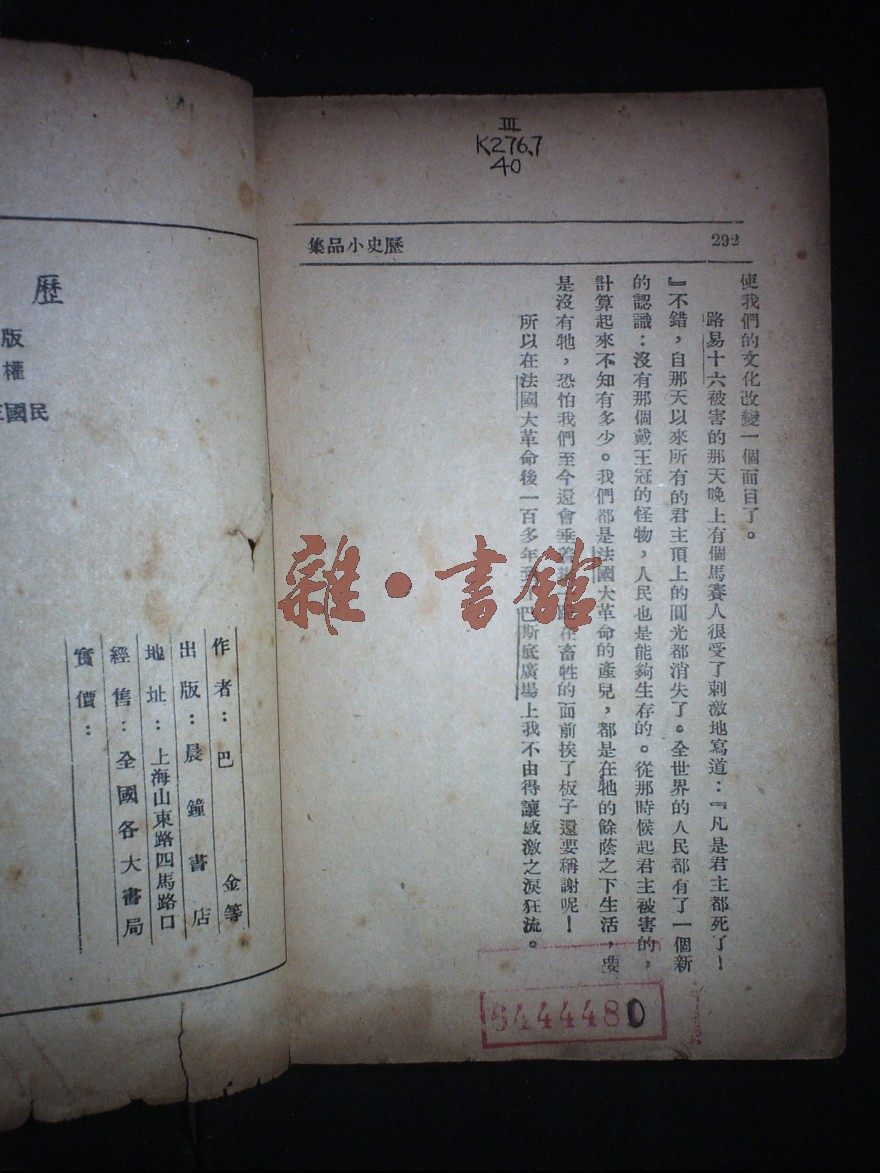 III
K276.7
40
292
集品小史歷
使我們的文化改變一個面目了。
路易十六被害的那天晚上有個馬賽人很受了刺激地寫道：『凡是君主都死了！
』不錯，自那天以來所有的君主頂上的圓光都消失了。全世界的人民都有了一個新
的認識：沒有那個戴王冠的怪物，人民也是能夠生存的。從那時候起君主被害的，
計算起來不知有多少。我們都是法國大革命的產兒，都是在牠的餘蔭之下生活，要
是沒有牠，恐怕我們至今還會垂着在畜牲的面前挨了板子還要稱謝呢！
所以在法國大革命後一百多年巴斯底廣場上我不由得讓感激之淚狂流。
444480
歷
版
權
民國
作者：巴金等
出版：晨鐘書店
地址：上海山東路四馬路口
經售：全國各大書局
實價：
雜·書館